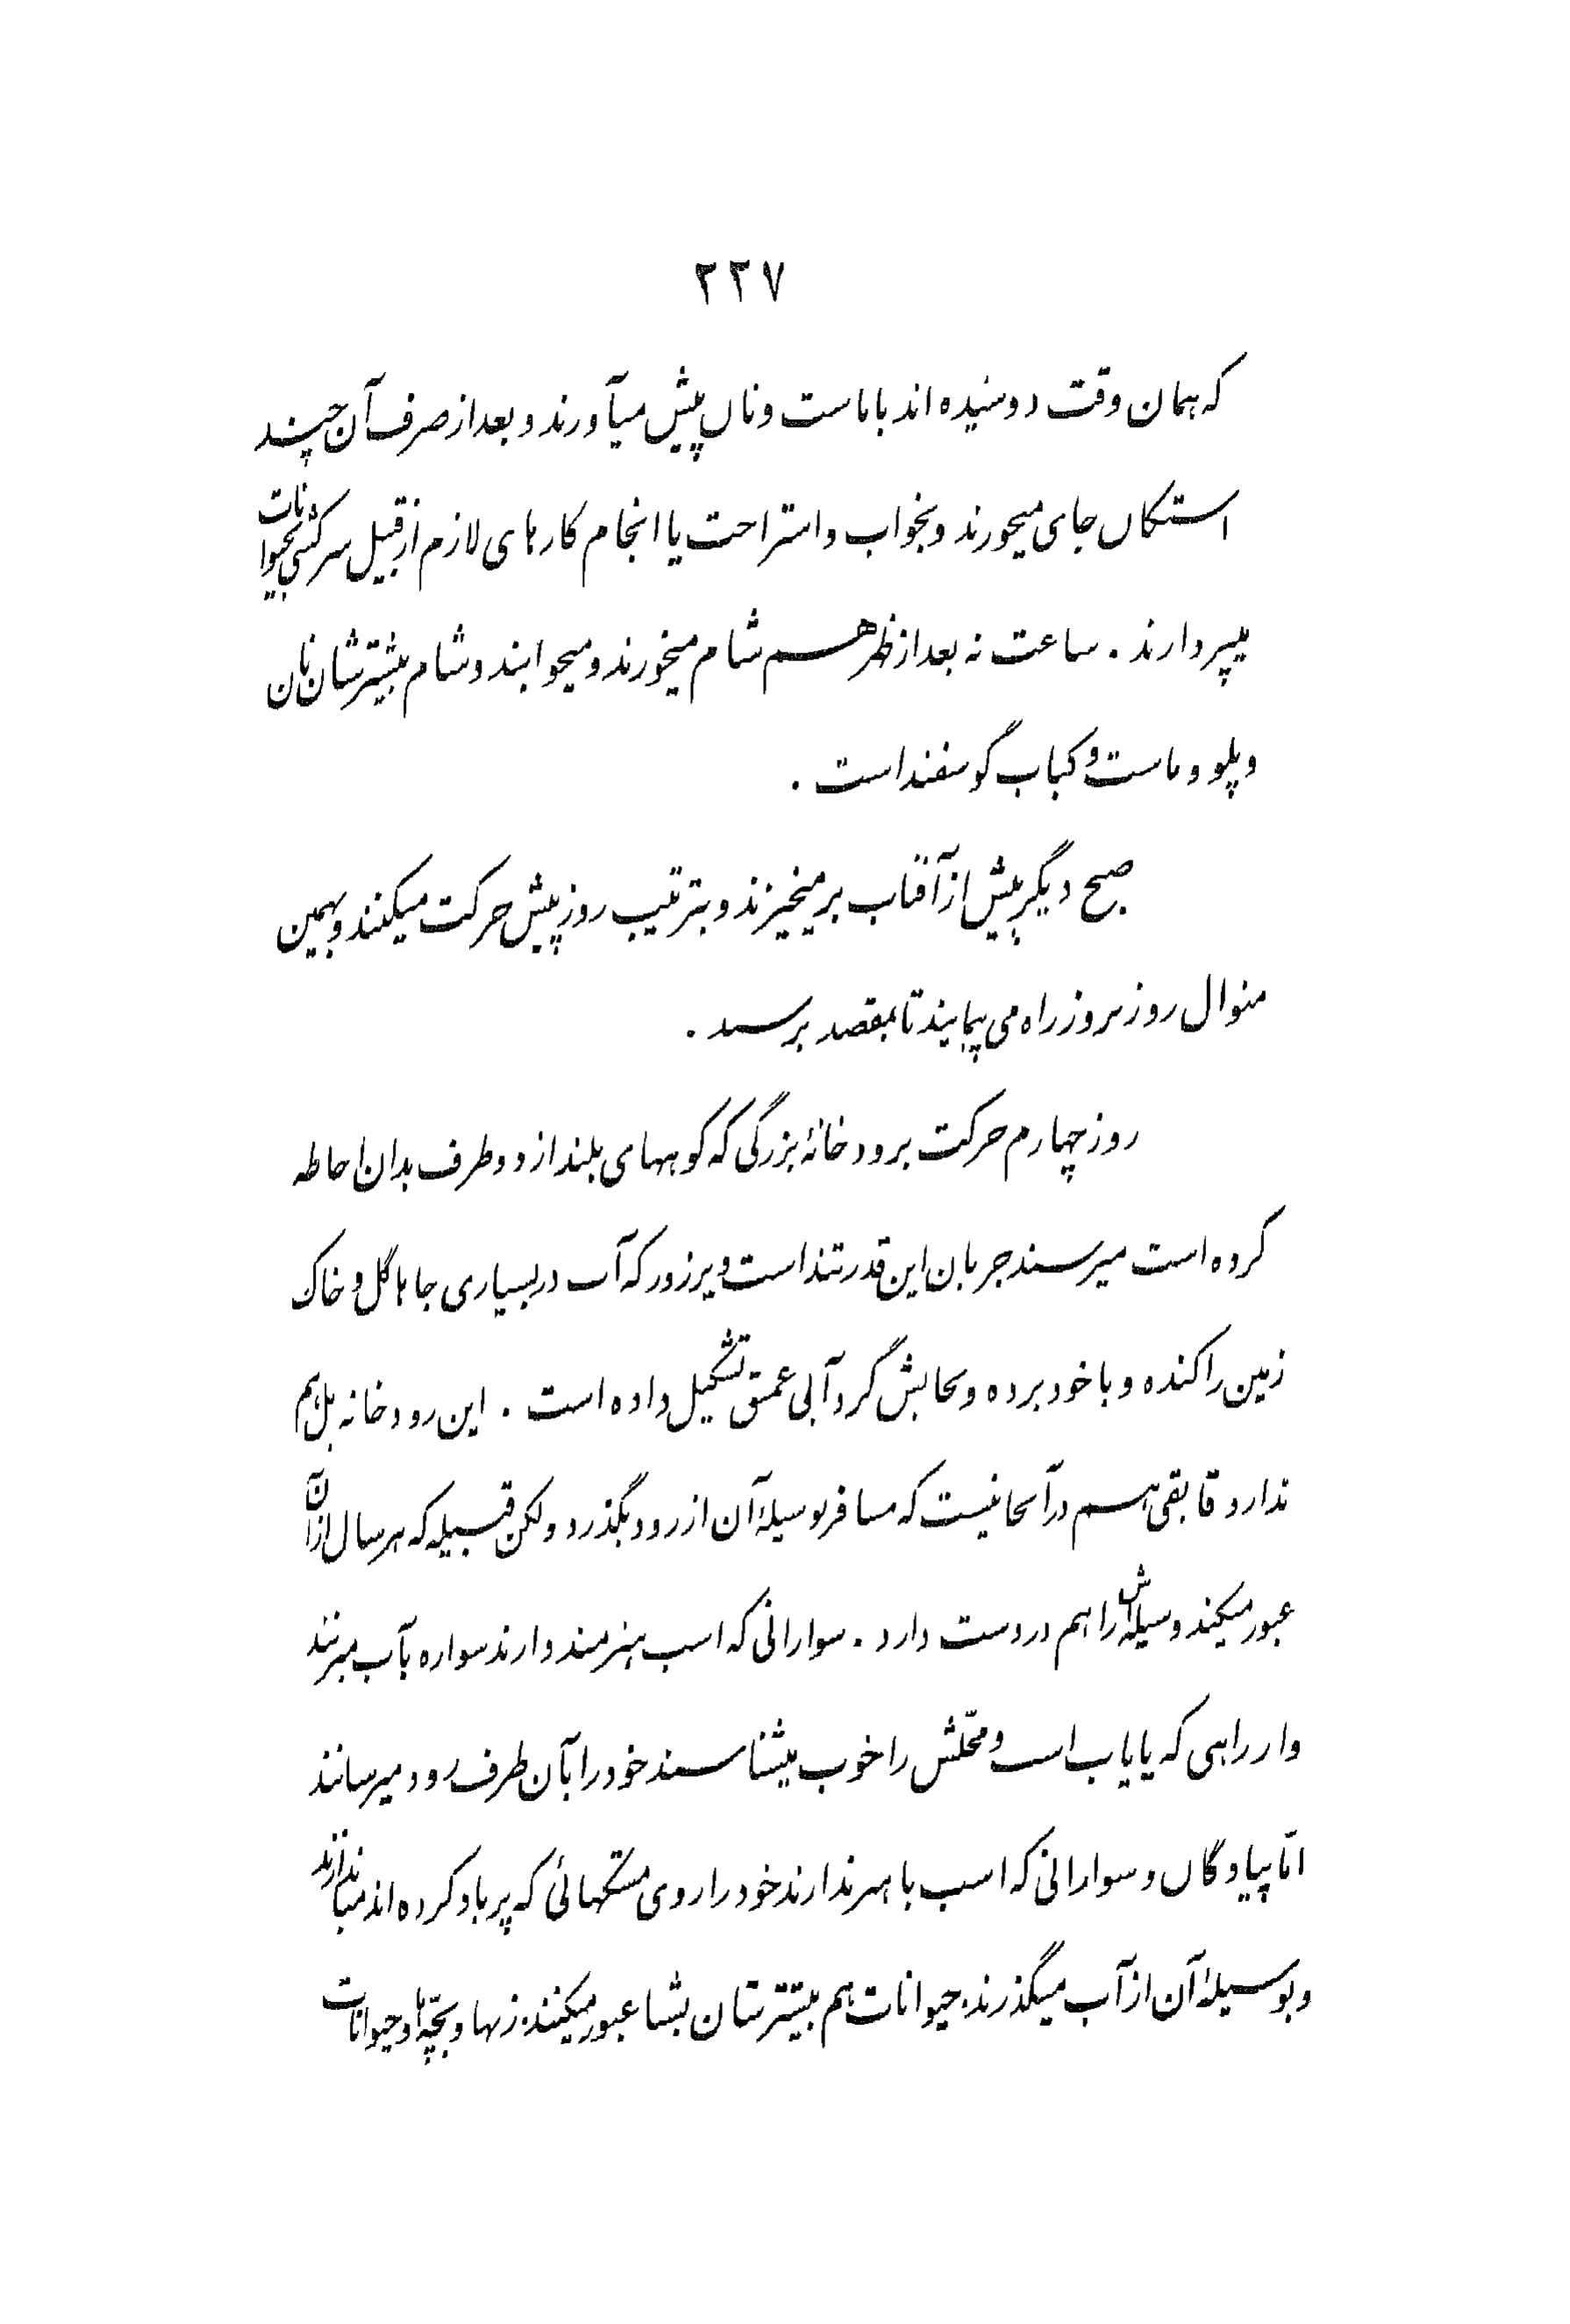 ۲۲۷
که همان وقت دوشیده اند با ماست و نان پیش میآورند و بعد از صرف آن چند
استکان چای میخورند و بخواب و استراحت یا انجام کارهای لازم از قبیل سرکشی بحیوانات
میپردازند . ساعت نه بعد از ظهر هم شام میخورند و میخوابند و شام بیشترشان نان
و پلو و ماست و کباب گوسفند است .
صبح دیگر پیش از آفتاب برمیخیزند و بترتیب روز پیش حرکت میکنند و بهمین
منوال روز بروز راه می پیمایند تا بمقصد برسند .
روز چهارم حرکت برودخانهٔ بزرگی که کوههای بلند از دو طرف بدان احاطه
کرده است میرسند جریان این قدر تند است و پرزور که آب در بسیاری جاها گل و خاک
زمین را کنده و با خود برده و بجایش گردآبی عمیق تشکیل داده است . این رودخانه پل هم
ندارد قایقی هم در آنجا نیست که مسافر بوسیلهٔ آن از رود بگذرد ولکن قبیله که هر سال از آن
عبور میکند وسیله اش را هم در دست دارد . سوارانی که اسب هنرمند دارند سواره بآب میزنند
و از راهی که پایاب است و محلّش را خوب میشناسند خود را بآن طرف رود میرسانند
امّا پیادگان و سوارانی که اسب با هنر ندارند خود را روی مشکهائی که پر باد کرده اند میاندازند
و بوسیلهٔ آن از آب میگذرند. حیوانات هم بیشترشان بشنا عبور میکنند. زنها و بچّه ها و حیوانات